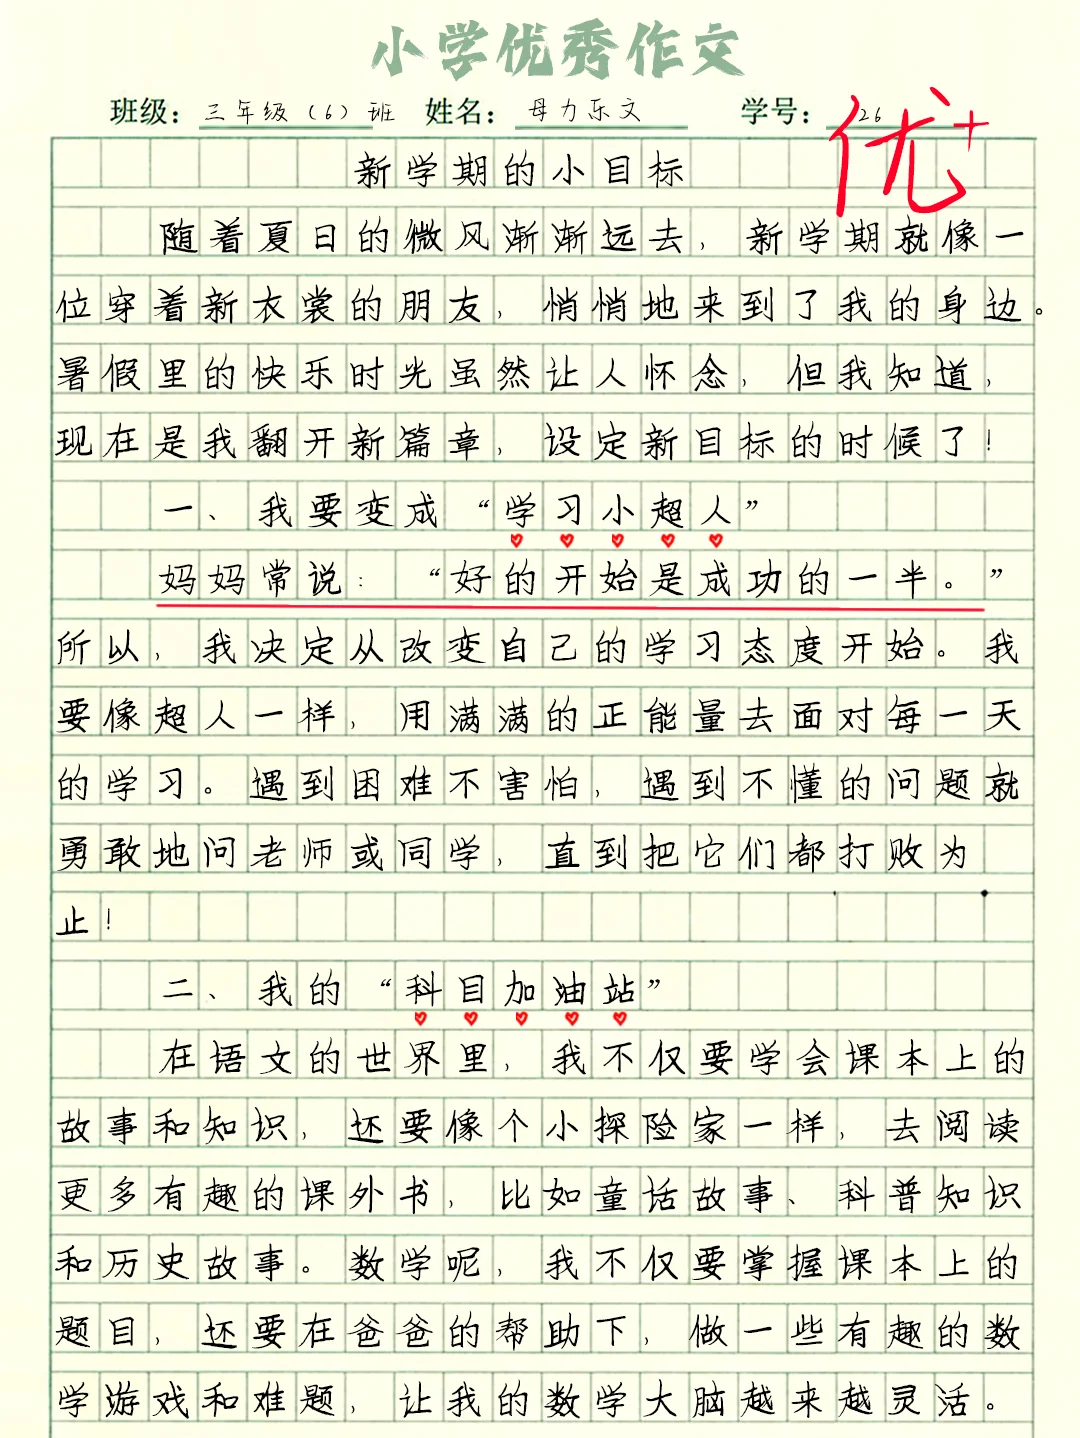 小学优秀作文
班级：三年级（6）班 姓名：母力乐文 学号：26
优+
新学期的小目标
随着夏日的微风渐渐远去，新学期就像一
位穿着新衣裳的朋友，悄悄地来到了我的身边。
暑假里的快乐时光虽然让人怀念，但我知道，
现在是我翻开新篇章，设定新目标的时候了！
一、我要变成“学习小超人”
妈妈常说：“好的开始是成功的一半。”
所以，我决定从改变自己的学习态度开始。我
要像超人一样，用满满的正能量去面对每一天
的学习。遇到困难不害怕，遇到不懂的问题就
勇敢地问老师或同学，直到把它们都打败为
止！
二、我的“科目加油站”
在语文的世界里，我不仅要学会课本上的
故事和知识，还要像个小探险家一样，去阅读
更多有趣的课外书，比如童话故事、科普知识
和历史故事。数学呢，我不仅要掌握课本上的
题目，还要在爸爸的帮助下，做一些有趣的数
学游戏和难题，让我的数学大脑越来越灵活。